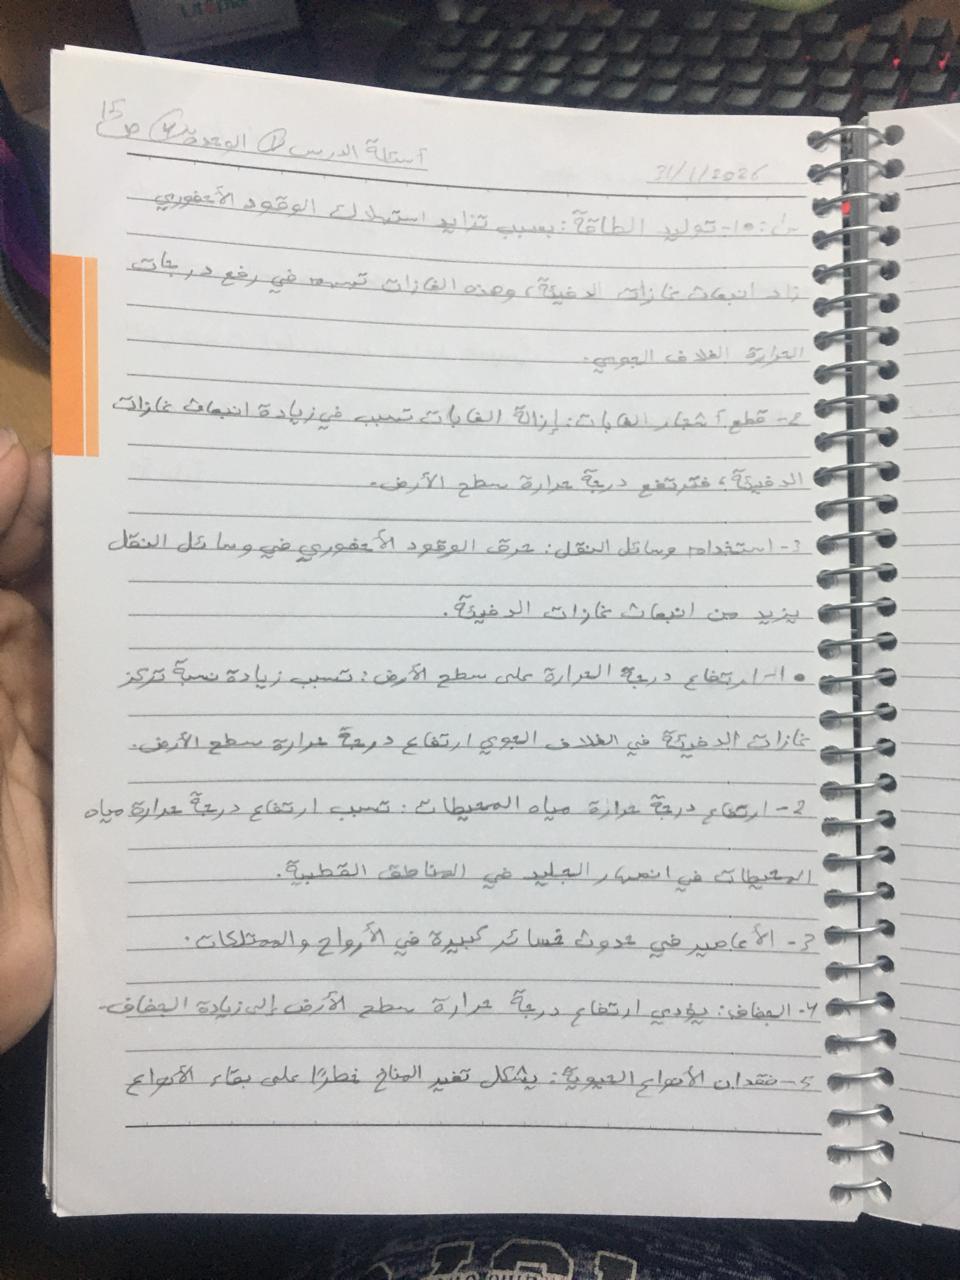 31/1/2026
أسئلة الدرس ① الوحدة ④ ص 15
س1: •1- توليد الطاقة: بسبب تزايد استهلاك الوقود الأحفوري
زاد انبعاث غازات الدفيئة، وهذه الغازات تسهم في رفع درجات
الحرارة الغلاف الجوي.
2- قطع أشجار الغابات: إزالة الغابات تسبب في زيادة انبعاث غازات
الدفيئة، فترتفع درجة حرارة سطح الأرض.
3- استخدام وسائل النقل: حرق الوقود الأحفوري في وسائل النقل
يزيد من انبعاث غازات الدفيئة.
• 1- ارتفاع درجة الحرارة على سطح الأرض: تسبب زيادة نسبة تركز
غازات الدفيئة في الغلاف الجوي ارتفاع درجة حرارة سطح الأرض.
2- ارتفاع درجة حرارة مياه المحيطات: تسبب ارتفاع درجة حرارة مياه
المحيطات في انصهار الجليد في المناطق القطبية.
3- الأعاصير في حدوث خسائر كبيرة في الأرواح والممتلكات.
4- الجفاف: يؤدي ارتفاع درجة حرارة سطح الأرض إلى زيادة الجفاف.
5- فقدان الأنواع الحيوية: يشكل تغير المناخ خطرًا على بقاء الأنواع